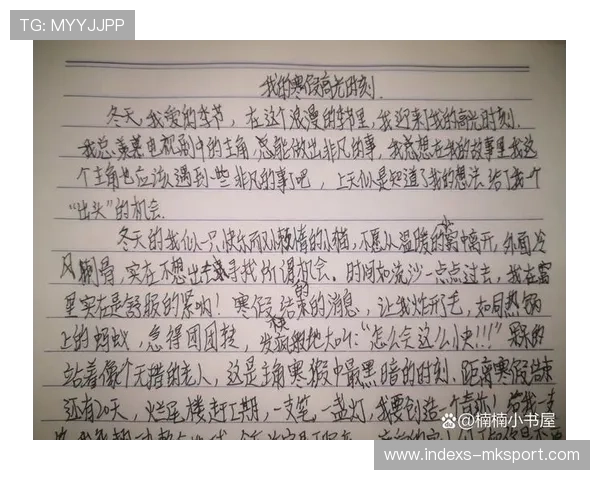 TG: MYYJJPP
我的寒假高光时刻
冬天,我爱的季节,在这个浪漫的季节里,我迎来了我的高光时刻.
我总羡慕电视剧中的主角,总能做出非凡的事,我总想在我的故事里我这
个主角也应该遇到一些非凡的事吧,上天似是知道了我的想法,给了我一个
"出头"的机会.
冬天的我似一只快乐而又慵懒的小猫,不愿从温暖的窝中离开,外面冷
风刺骨,实在不想出去寻找所谓机会.时间如流沙一点点过去,我在窝
里实在是舒服的紧啊!寒假结束的消息,让我炸开了毛,如同热锅
上的蚂蚁,急得团团转,发疯般地大叫:"怎么会这么快!!!"呆呆的
站着像个无措的老人,这是主角寒假中最黑暗的时刻.距离寒假结束
还有20天,烂尾楼赶工期,一支笔一盏灯,我要创造一个奇迹!给我一支
楠楠小书屋
www.indexs-mksport.com